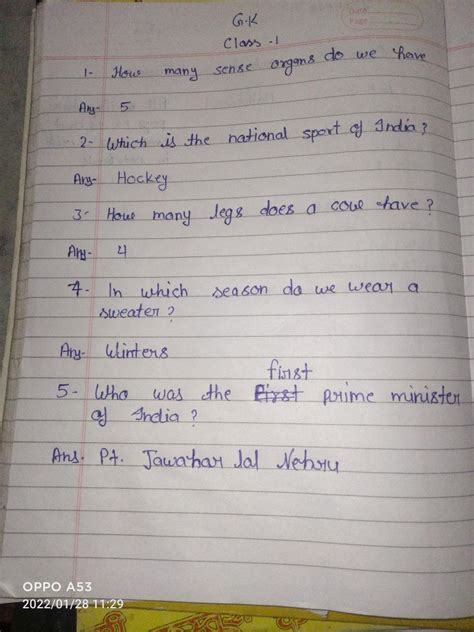 G.K
Date
Page
Class -1
1- How many sense organs do we have
Ans- 5
2- Which is the national sport of India?
Ans- Hockey
3- How many legs does a cow have?
Ans- 4
4- In which season do we wear a
sweater?
Ans- Winters
first
5- Who was the First prime minister
of India?
Ans. Pt. Jawahar lal Nehru
OPPO A53
2022/01/28 11:29